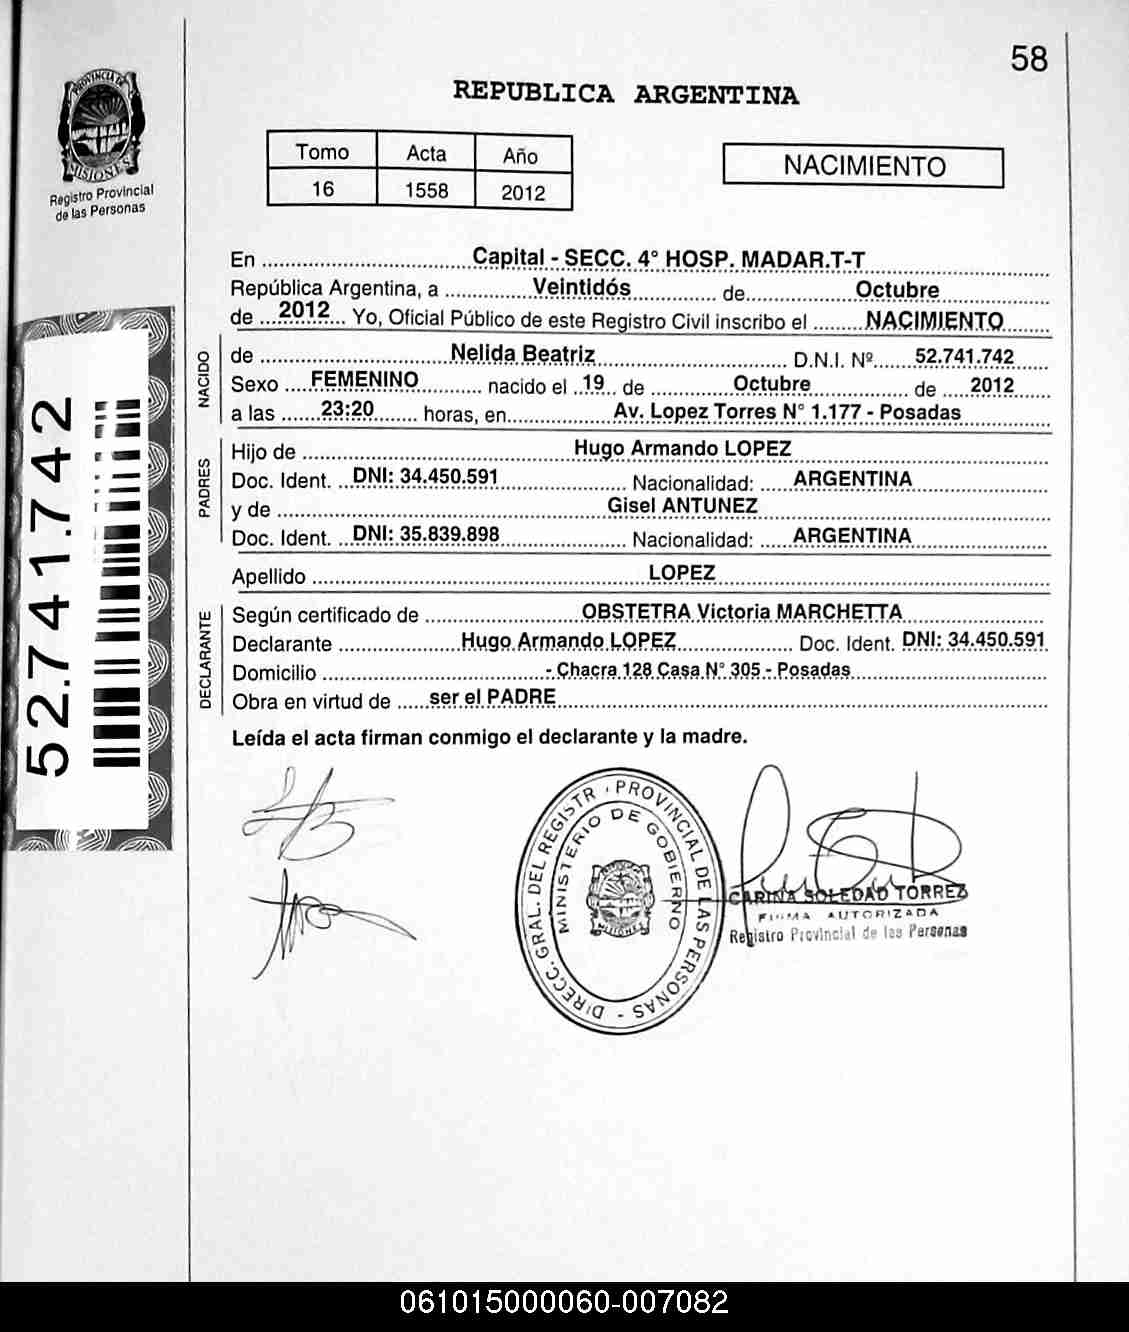 58
REPUBLICA ARGENTINA
PROVINCIA DE
MISIONES
Registro Provincial
de las Personas
Tomo Acta Año
16 1558 2012
NACIMIENTO
En ........ Capital - SECC. 4° HOSP. MADAR.T-T
República Argentina, a ........ Veintidós ........ de ........ Octubre
de ... 2012 ... Yo, Oficial Público de este Registro Civil inscribo el ........ NACIMIENTO
NACIDO
de ........ Nelida Beatriz ........ D.N.I. Nº ........ 52.741.742
Sexo .... FEMENINO ........ nacido el .19. de ........ Octubre ........ de .... 2012
a las ...... 23:20 ...... horas, en ........ Av. Lopez Torres N° 1.177 - Posadas
PADRES
Hijo de ........ Hugo Armando LOPEZ
Doc. Ident. .. DNI: 34.450.591 ........ Nacionalidad: ..... ARGENTINA
y de ........ Gisel ANTUNEZ
Doc. Ident. .. DNI: 35.839.898 ........ Nacionalidad: ..... ARGENTINA
Apellido ........ LOPEZ
DECLARANTE
Según certificado de ........ OBSTETRA Victoria MARCHETTA
Declarante ........ Hugo Armando LOPEZ ........ Doc. Ident. DNI: 34.450.591
Domicilio ........ - Chacra 128 Casa N° 305 - Posadas
Obra en virtud de ..... ser el PADRE
Leída el acta firman conmigo el declarante y la madre.
52.741.742
DIRECC. GRAL. DEL REGISTR. PROVINCIAL DE LAS PERSONAS -
MINISTERIO DE GOBIERNO
MISIONES
CARINA SOLEDAD TORREZ
FIRMA AUTORIZADA
Registro Provincial de las Personas
061015000060-007082